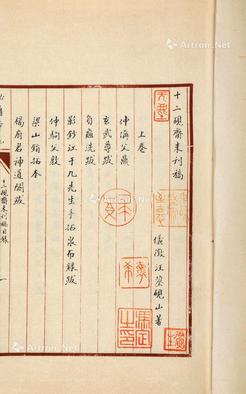 十二硯齋未刊稿
儀徵汪鋆硯山著
上卷
仲偁父鼎
玄武尊跋
洗跋
影鈔江于九先生手拓泉布錄跋
仲駒父敦
梁山鋗拓本
楊府君神道闕跋
十二硯齋未刊稿目錄
一